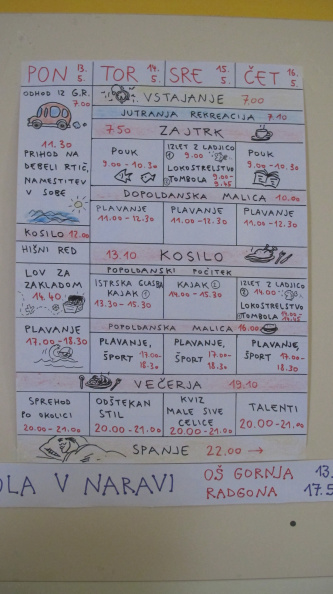 PON 13. 5. TOR 14. 5. SRE 15. 5. ČET 16. 5.
ODHOD IZ G.R.
7.00
11.30
PRIHOD NA
DEBELI RTIČ,
NAMESTITEV
V SOBE
KOSILO 12.00
HIŠNI RED
LOV ZA
ZAKLADOM
14.40
PLAVANJE
17.00-18.30
SPREHOD
PO OKOLICI
20.00-21.00
VSTAJANJE 7.00
JUTRANJA REKREACIJA 7.10
7.50 ZAJTRK
POUK
9.00-10.30
IZLET Z LADJICO
9.00
LOKOSTRELSTVO
TOMBOLA 9.00-
9.45
POUK
9.00-10.30
DOPOLDANSKA MALICA 10.00
PLAVANJE
11.00-12.30
PLAVANJE
11.00-12.30
PLAVANJE
11.00-12.30
13.10 KOSILO
POPOLDANSKI POČITEK
ISTRSKA GLASBA
KAJAK 1
13.30-15.30
KAJAK 2
14.00-15.30
IZLET Z LADJICO
14.00
LOKOSTRELSTVO
TOMBOLA
POPOLDANSKA MALICA 16.00
PLAVANJE,
ŠPORT 17.00-
18.30
PLAVANJE,
ŠPORT 17.00-
18.30
PLAVANJE,
ŠPORT 17.00-
18.30
VEČERJA 19.10
ODŠTEKAN
STIL
20.00-21.00
KVIZ
MALE SIVE
CELICE
20.00-21.00
TALENTI
20.00-21.00
SPANJE 22.00 →
OLA V NARAVI
OŠ GORNJA
RADGONA
13.
17.5